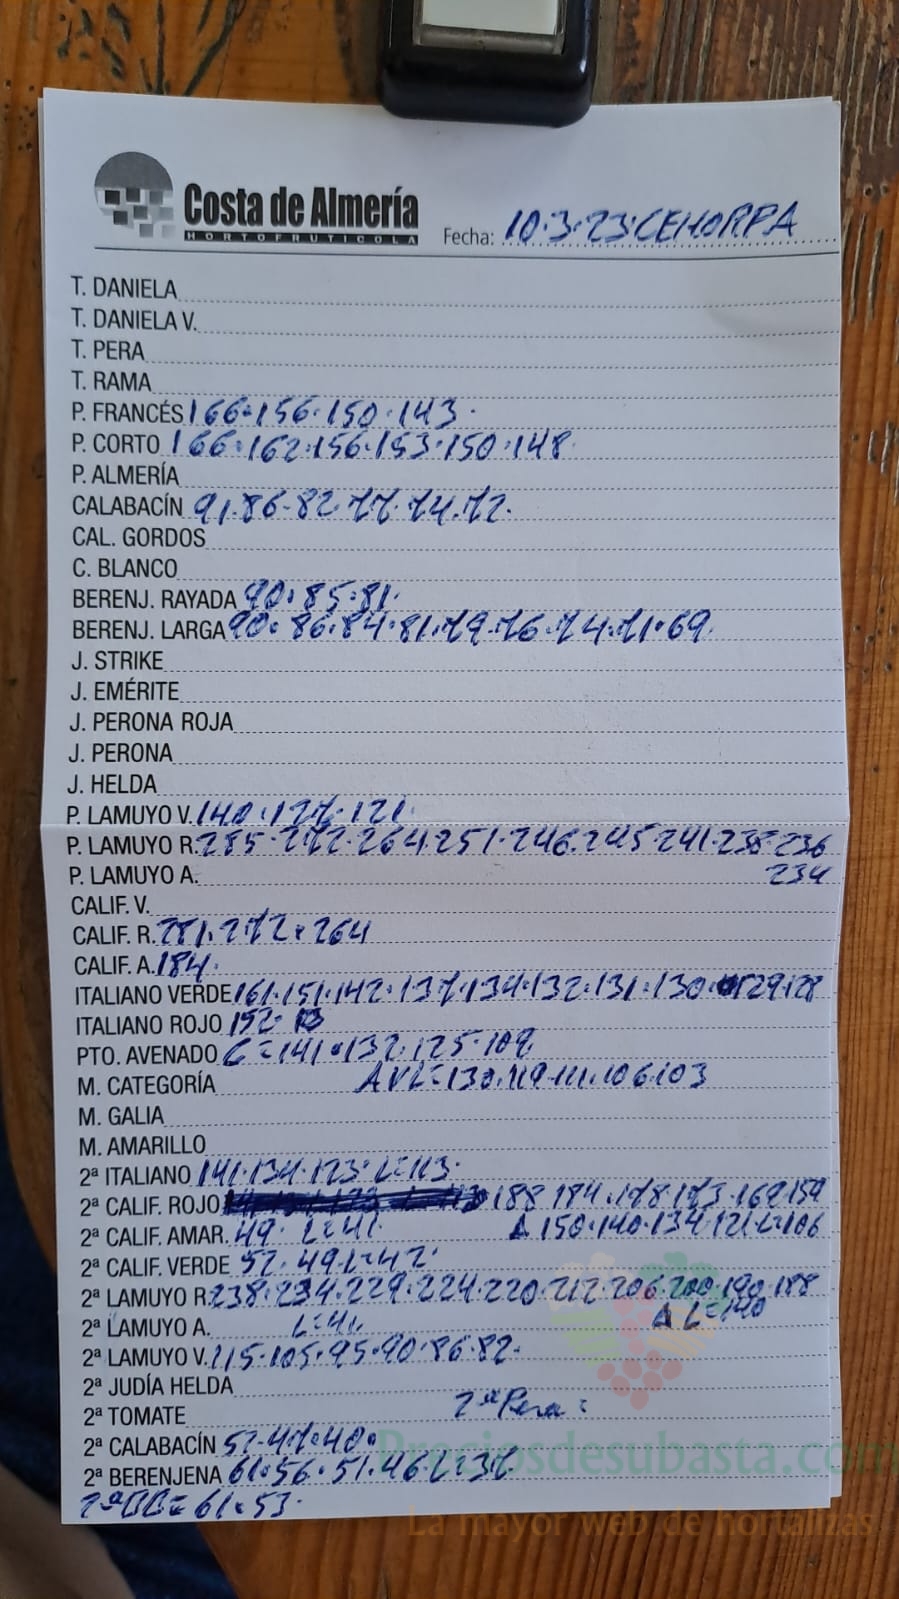 Costa de Almería
HORTOFRUTICOLA
Fecha: 10·3·23·CEHORPA
T. DANIELA
T. DANIELA V.
T. PERA
T. RAMA
P. FRANCÉS 166·156·150·143·
P. CORTO 166·162·156·153·150·148·
P. ALMERÍA
CALABACÍN 91·86·82·77·74·72·
CAL. GORDOS
C. BLANCO
BERENJ. RAYADA 90·85·81·
BERENJ. LARGA 90·86·84·81·79·76·74·71·69·
J. STRIKE
J. EMÉRITE
J. PERONA ROJA
J. PERONA
J. HELDA
P. LAMUYO V. 140·127·121·
P. LAMUYO R. 285·272·264·251·246·245·241·238·236
P. LAMUYO A. 234
CALIF. V.
CALIF. R. 281·272·264
CALIF. A. 184·
ITALIANO VERDE 161·151·142·137·134·132·131·130·129·128
ITALIANO ROJO 152·
PTO. AVENADO C=141·132·125·109
M. CATEGORÍA AVL=130·119·111·106·103
M. GALIA
M. AMARILLO
2ª ITALIANO 141·134·123·L=113·
2ª CALIF. ROJO 188·184·178·173·169·159
2ª CALIF. AMAR. 49· L=41 Δ 150·140·134·121·L=106
2ª CALIF. VERDE 52·49·L=42·
2ª LAMUYO R. 238·234·229·224·220·212·206·200·190·188
2ª LAMUYO A. L=41 Δ L=140
2ª LAMUYO V. 115·105·95·90·86·82·
2ª JUDÍA HELDA
2ª TOMATE 2ª Pera:
2ª CALABACÍN 52·47·40·
2ª BERENJENA 61·56·51·46·L=37
2ªBB=61·53·
Preciosdesubasta.com
La mayor web de hortalizas